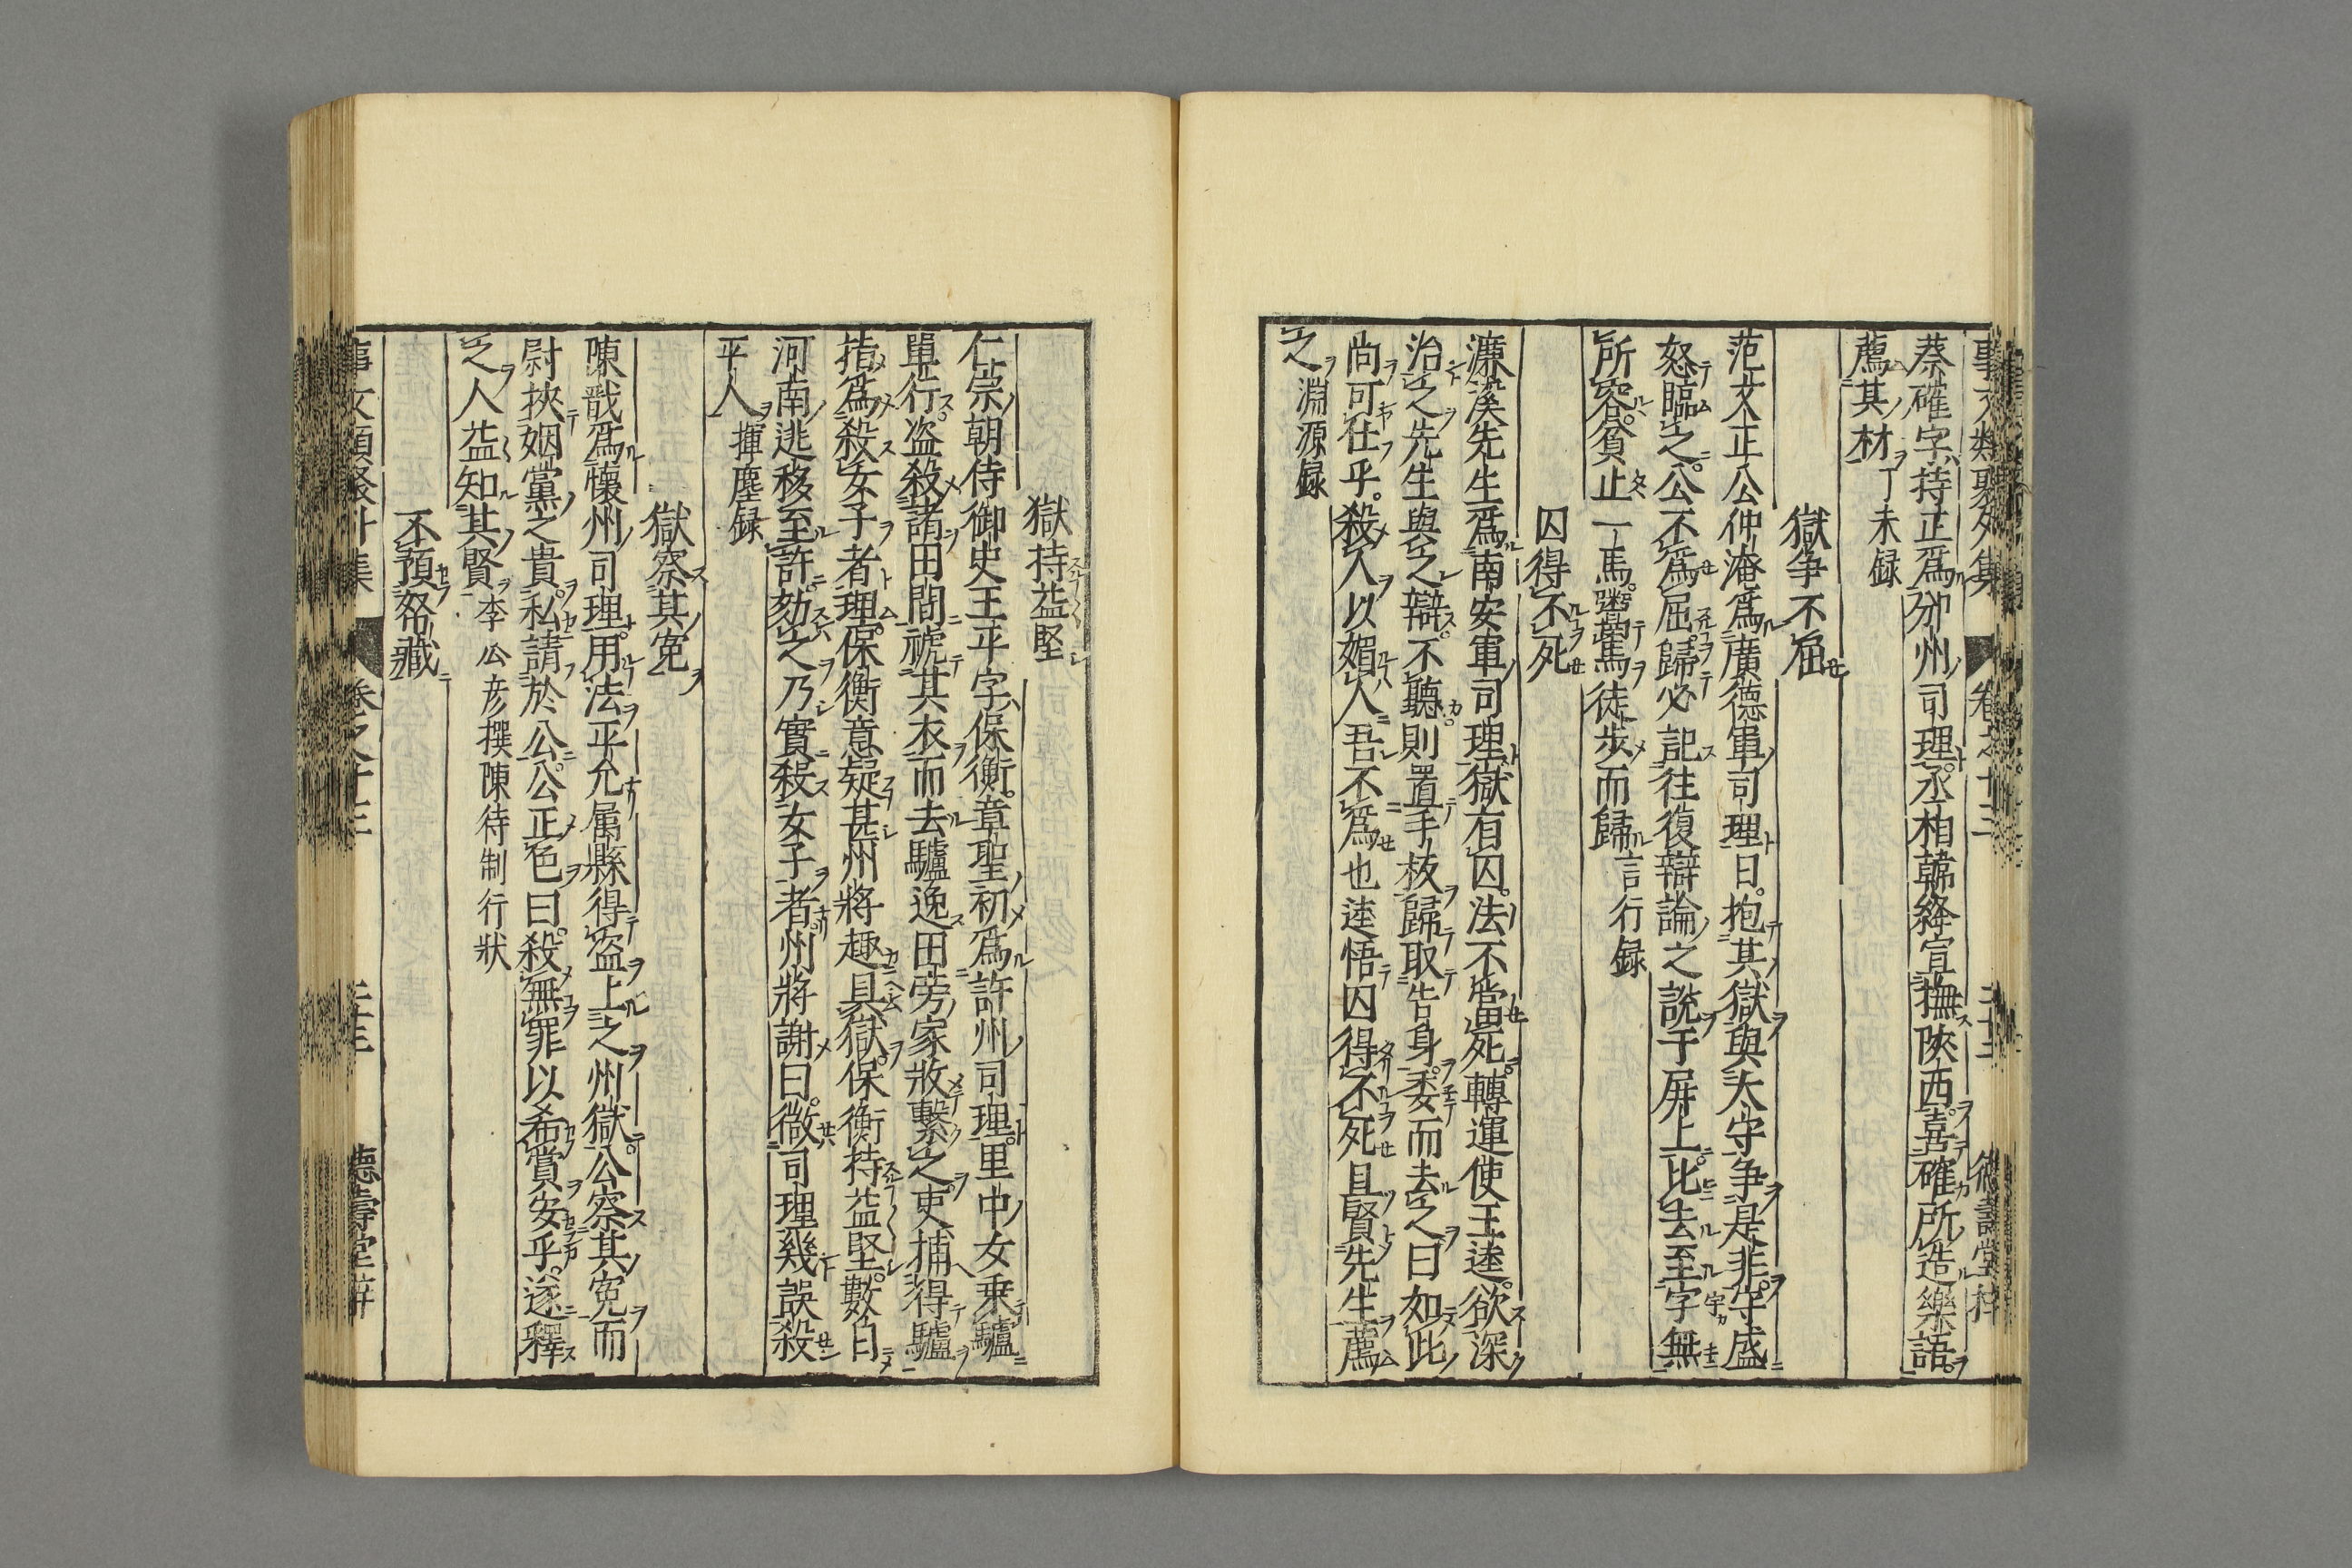 事文類聚外集 卷之十三 二十三 德壽堂梓
蔡確字持正爲邠州司理丞相韓絳宣撫陝西喜確所造樂語
薦其材丁未録
獄爭不屈
范文正公仲淹爲廣德軍司理日抱其獄與太守爭是非守盛
怒臨之公不爲屈歸必記徃復辯論之說于屏上比去至字無
所容貧止一馬鬻馬徒歩而歸言行録
囚得不死
濂溪先生爲南安軍司理獄有囚法不當死轉運使王逵欲深
治之先生與之辯不聽則置手板歸取告身委而去之曰如此
尚可仕乎殺人以媚人吾不爲也逵悟囚得不死且賢先生薦
之淵源録
獄持益堅
仁宗朝侍御史王平字保衡章聖初爲許州司理里中女乗驢
單行盗殺諸田間褫其衣而去驢逸田旁家收繫之吏捕得驢
指爲殺女子者理保衡意疑甚州將趣具獄保衡持益堅數日
河南逃移至許劾之乃實殺女子者州將謝曰微司理幾誤殺
平人揮塵録
獄察其寃
陳戩爲懷州司理用法平允属縣得盗上之州獄公察其寃而
尉挾姻黨之貴私請於公公正色曰殺無罪以希賞安乎遂釋
之人益知其賢李公彦撰陳待制行狀
不預帑藏
事文類聚外集 卷之十三 二十三 德壽堂梓